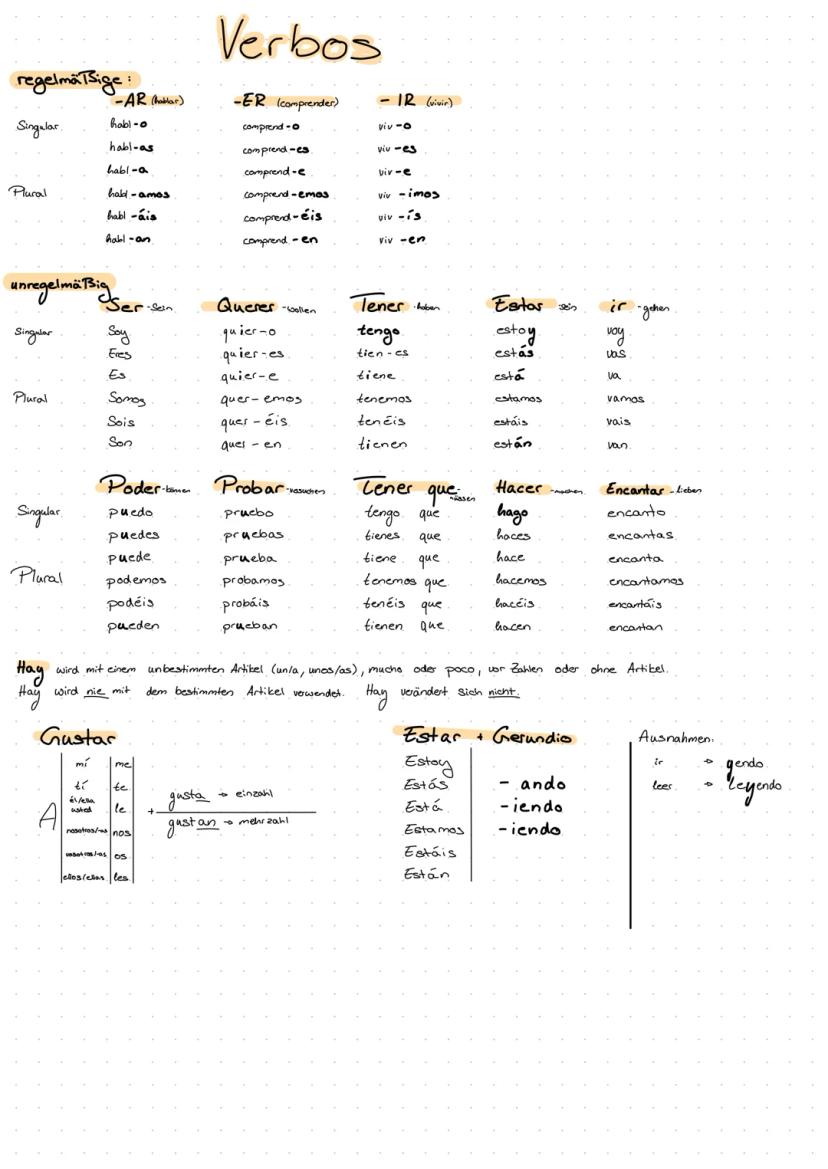 Verbos
regelmäßige:
-AR (hablar) -ER (comprender) -IR (vivir)
Singular habl-o comprend-o viv-o
habl-as comprend-es viv-es
habl-a comprend-e viv-e
Plural habl-amos comprend-emos viv-imos
habl-áis comprend-éis viv-ís
habl-an comprend-en viv-en
unregelmäßig
Ser -sein Querer -wollen Tener -haben Estar -sein ir -gehen
Singular Soy quier-o tengo estoy voy
Eres quier-es tien-es estás vas
Es quier-e tiene está va
Plural Somos quer-emos tenemos estamos vamos
Sois quer-éis tenéis estáis vais
Son quer-en tienen están van
Poder -können Probar -versuchen Tener que -müssen Hacer -machen Encantar -lieben
Singular puedo pruebo tengo que hago encanto
puedes pruebas tienes que haces encantas
puede prueba tiene que hace encanta
Plural podemos probamos tenemos que hacemos encantamos
podéis probáis tenéis que hacéis encantáis
pueden prueban tienen que hacen encantan
Hay wird mit einem unbestimmten Artikel (un/a, unos/as), mucho oder poco, vor Zahlen oder ohne Artikel.
Hay wird nie mit dem bestimmten Artikel verwendet. Hay verändert sich nicht.
Gustar
A
mí me
tí te
él/ella usted le
nosotros/-as nos
vosotros/-as os
ellos/ellas les
+ gusta → einzahl
gustan → mehrzahl
Estar + Gerundio
Estoy
Estás - ando
Está -iendo
Estamos -iendo
Estáis
Están
Ausnahmen:
ir → gendo
leer → leyendo